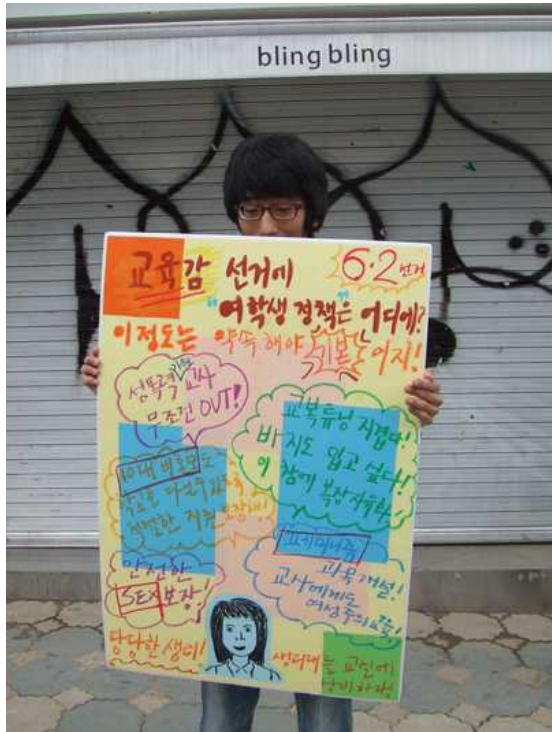 bling bling
교육감 선거에
6·2 선거
"여학생 정책"은 어디에?
이정도는 약속 해야 기본 이지!
성폭력 교사
무조건 OUT!
교복튜닝 지겹다!
바지도 입고 싶다!
이 참에 복장자유화!
10대 비혼모도
적절한 지원 보장해!
페미니즘
과목개설!
교사에게도
여성주의 교육!
안전한
SEX보장!
당당한 생리!
생리대는 교실에